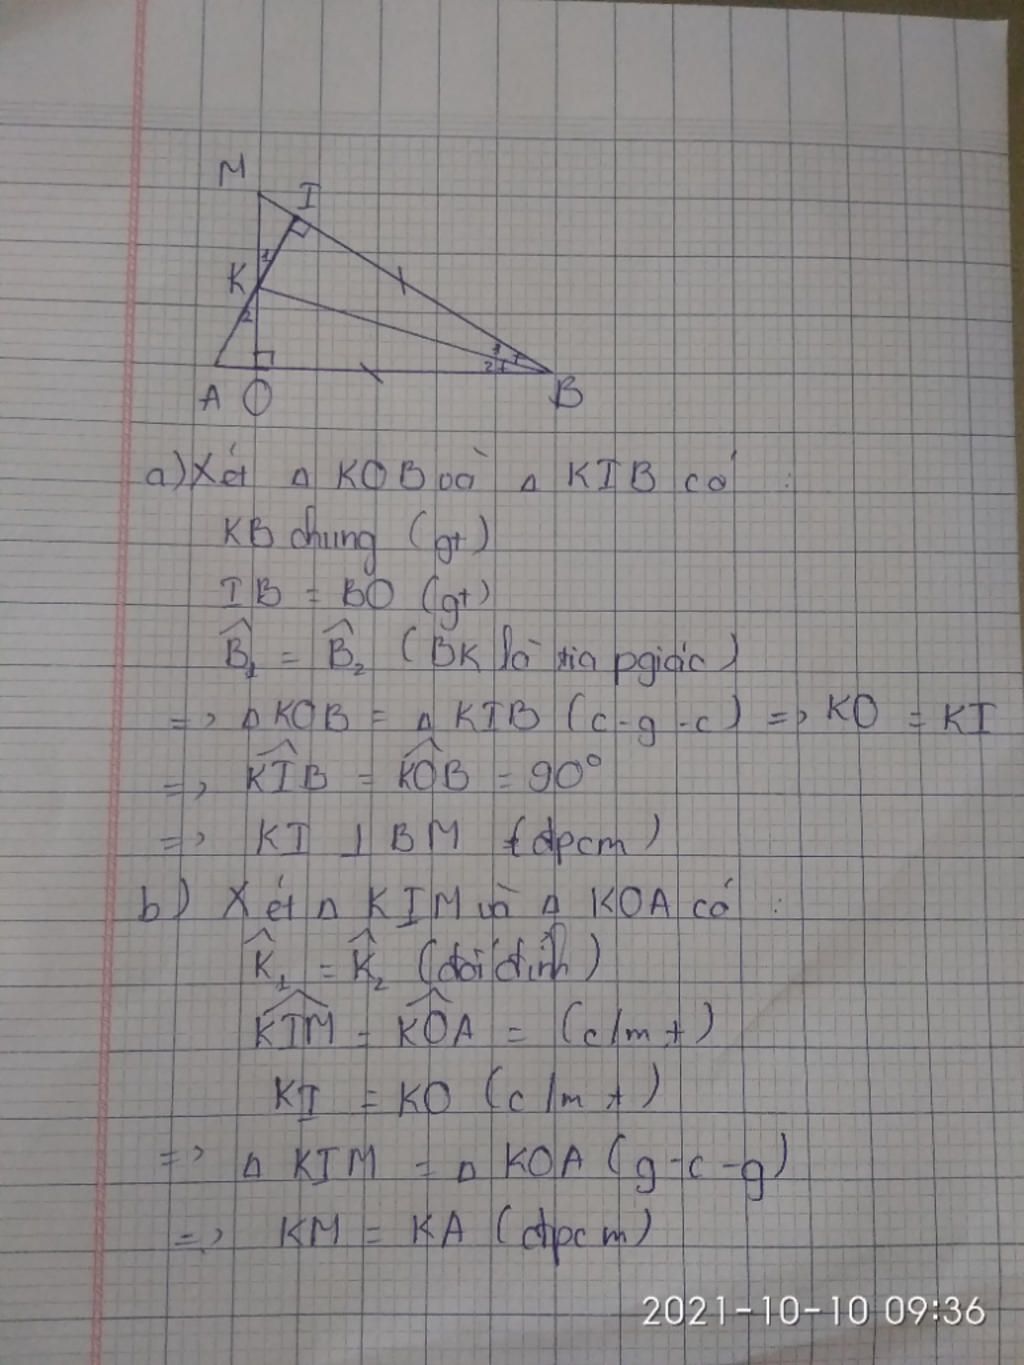 M
I
1
K
2
1
2
A O
B
a) Xét Δ KOB và Δ KIB có :
KB chung (gt)
IB = BO (gt)
B̂₁ = B̂₂ (BK là tia pgiác)
=> Δ KOB = Δ KIB (c-g-c) => KO = KI
=> K̂IB = K̂OB = 90°
=> KI ⊥ BM (đpcm)
b) Xét Δ KIM và Δ KOA có :
K̂₁ = K̂₂ (đối đỉnh)
K̂IM = K̂OA = (c/m t)
KI = KO (c/m t)
=> Δ KIM = Δ KOA (g-c-g)
=> KM = KA (đpcm)
2021-10-10 09:36